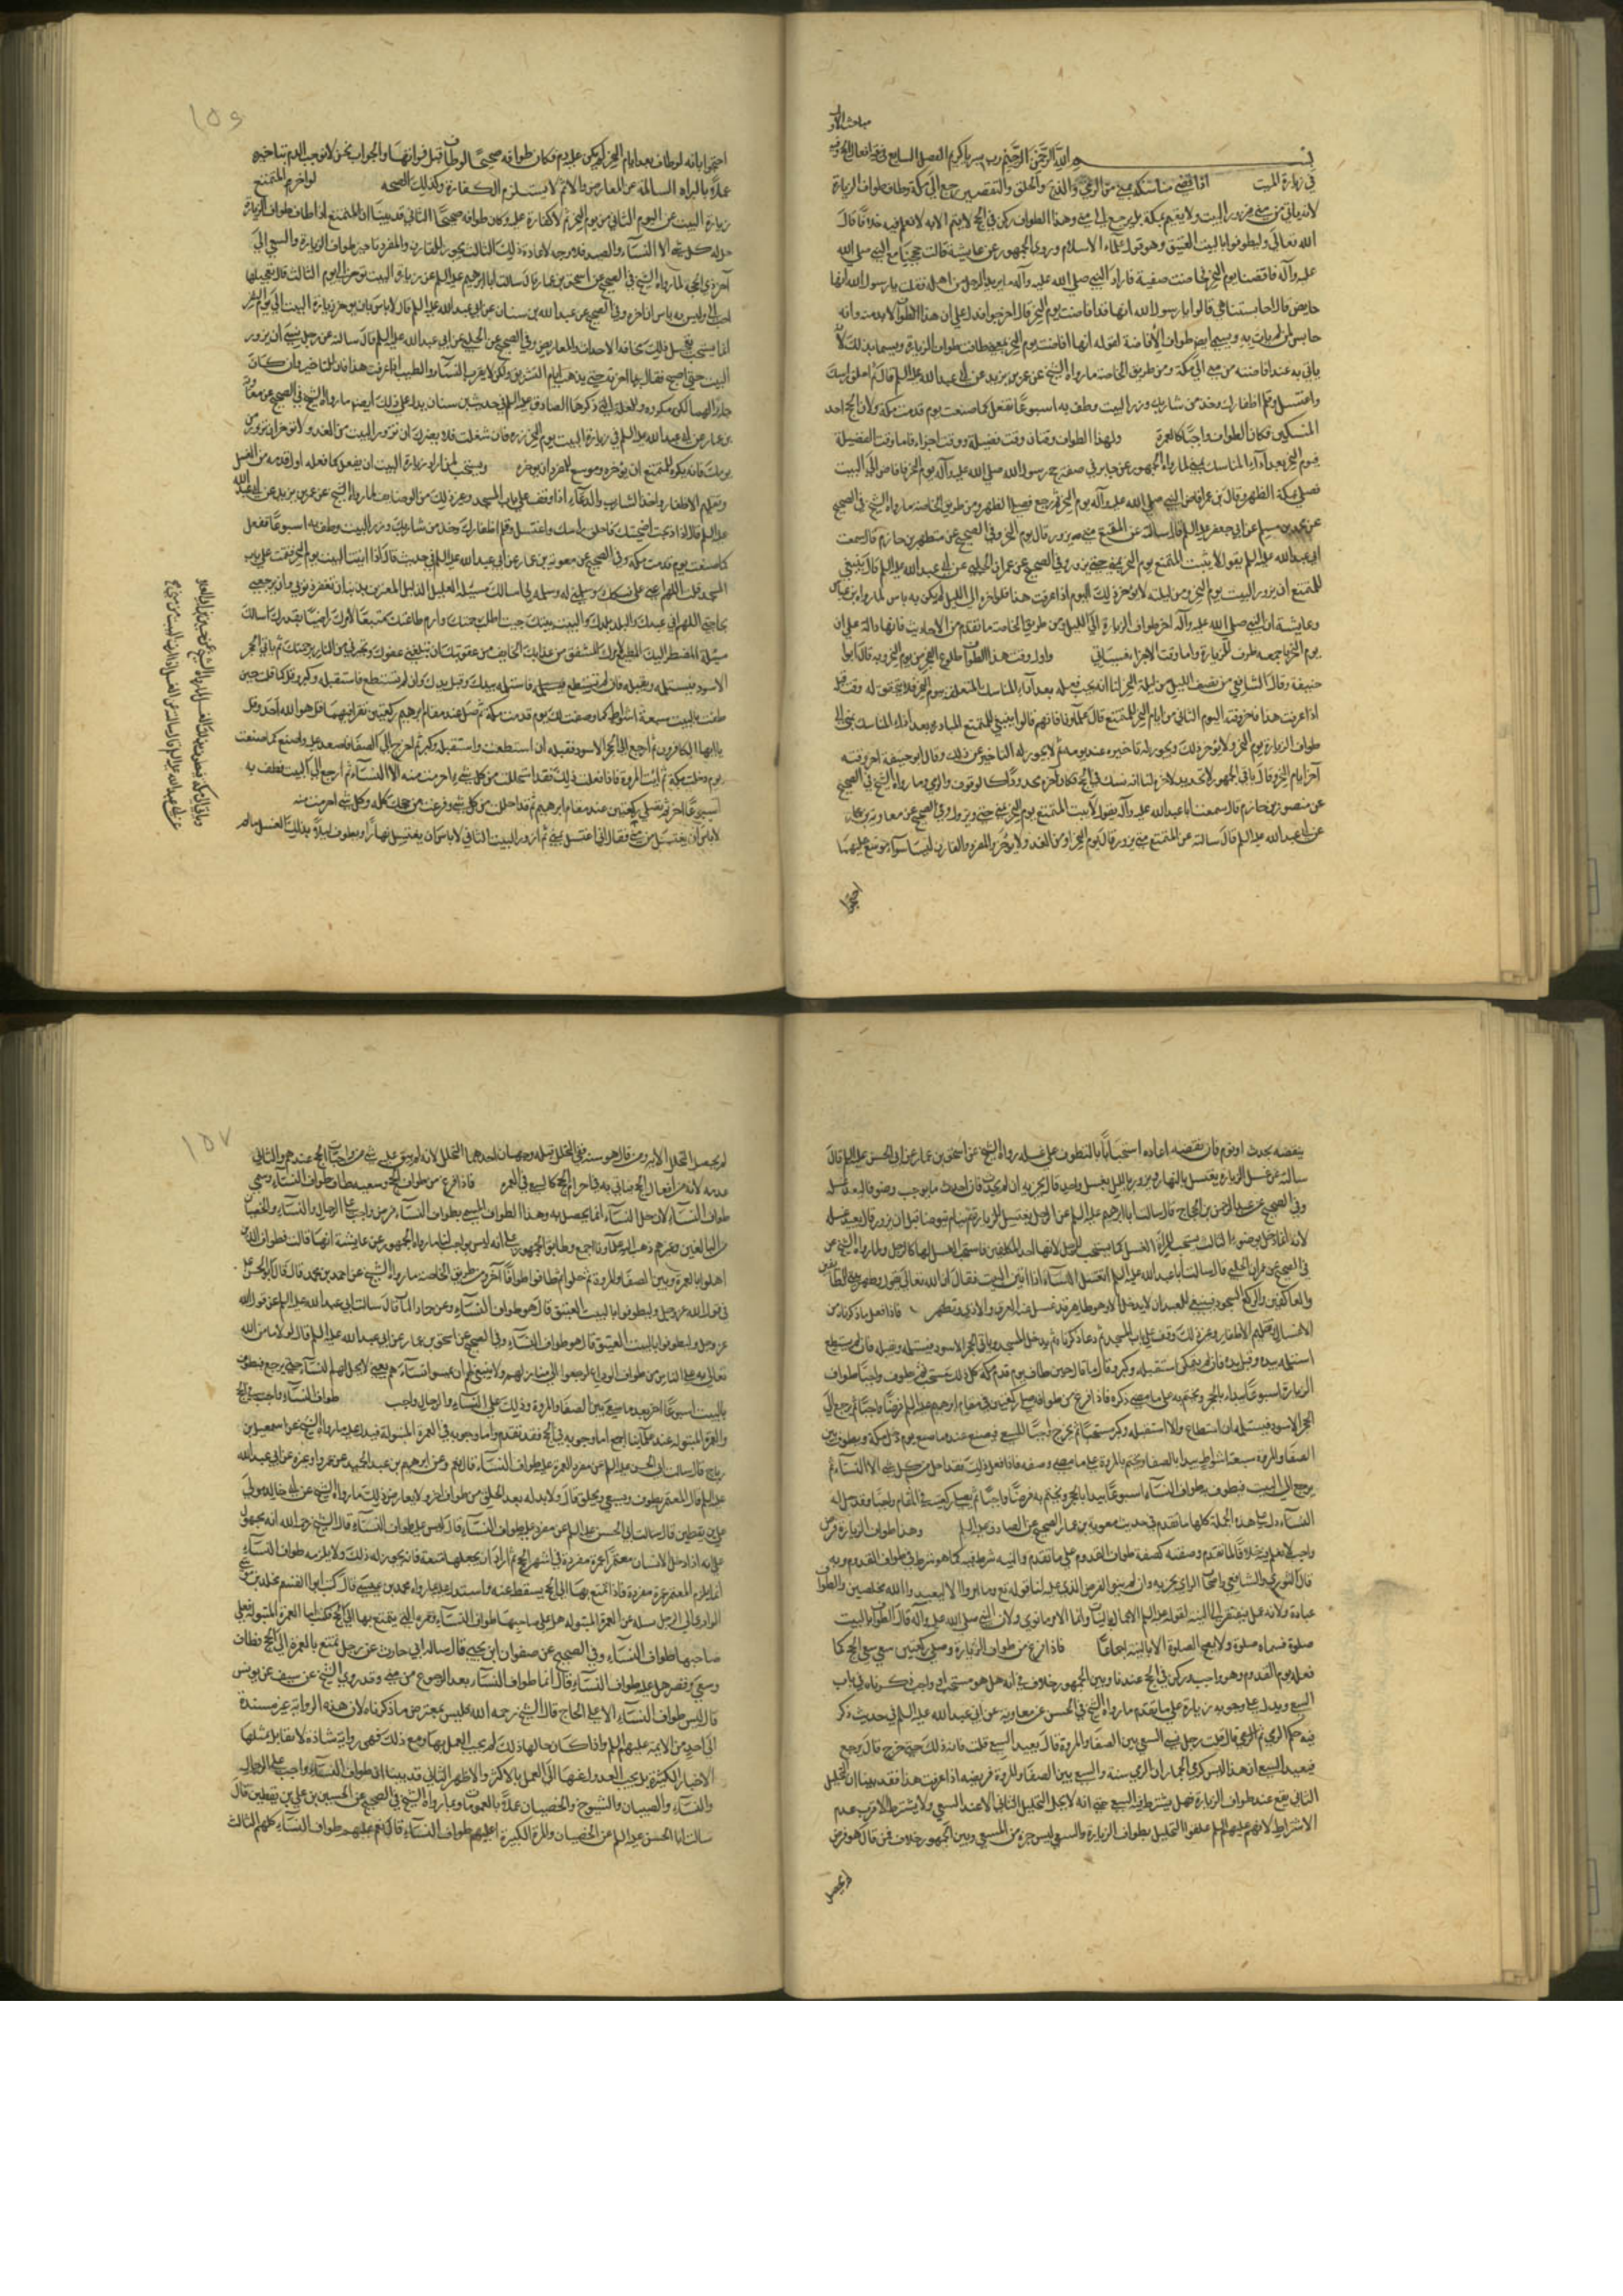 مباحث الاول
بسم الله الرحمن الرحيم رب يسر يا كريم الفصل السابع في بقية افعال الحج وفيه
في زيارة البيت اذا قضى مناسكه بمنى من الرمي والذبح والحلق والتقصير رجع الى مكة وطاف طواف الزيارة
لانه ياتي من منى فيزور البيت ولا يقيم بمكة بل يرجع الى منى وهذا الطواف ركن في الحج لا يتم الا به لا نعلم فيه خلافا قال
الله تعالى وليطوفوا بالبيت العتيق وهو قول علماء الاسلام وروى الجمهور عن عايشة قالت حججنا مع النبي صلى الله
عليه وآله فافضنا يوم النحر فحاضت صفية فاراد النبي صلى الله عليه وآله ما يريد الرجل من اهله فقلت يا رسول الله انها
حايض قال احابستنا هي قالوا يا رسول الله انها قد افاضت يوم النحر قال اخرجوا فدل على ان هذا الطواف لا بد منه وانه
حابس لمن لم يات به ويسمى ايضا طواف الافاضة لقوله انها افاضت يوم النحر يعني طافت طواف الزيارة وسمي بذلك لانه
ياتي به عند افاضته من منى الى مكة ومن طريق الخاصة ما رواه الشيخ عن عمر بن يزيد عن ابي عبد الله عليه السلم قال ثم احلق راسك
واغتسل وقلم اظفارك وخذ من شاربك وزر البيت وطف به اسبوعا تفعل كما صنعت يوم قدمت مكة ولان الحج احد
النسكين فكان الطواف واجبا كالعمرة ولهذا الطواف وقتان وقت فضيلة ووقت اجزاء فاما وقت الفضيلة
فيوم النحر بعد اداء المناسك بمنى لما رواه الجمهور عن جابر في صفة حج رسول الله صلى الله عليه وآله يوم النحر فافاض الى البيت
فصلى بمكة الظهر وقال ابن عمر افاض النبي صلى الله عليه وآله يوم النحر ثم رجع فصلى الظهر ومن طريق الخاصة ما رواه الشيخ في الصحيح
عن محمد بن مسلم عن ابي جعفر عليه السلم قال سالته عن المتمتع متى يزور قال يوم النحر وفي الصحيح عن منصور بن حازم قال سمعت
ابي عبد الله عليه السلم يقول لا يبيت المتمتع يوم النحر بمنى حتى يزور وفي الصحيح عن عمران الحلبي عن ابي عبد الله عليه السلم قال ينبغي
للمتمتع ان يزور البيت يوم النحر ومن ليلته لا يؤخر ذلك اليوم اذا عرفت هذا فلو اخره الى الليل لم يكن به باس لما رواه ابن عباس
وعايشة ان النبي صلى الله عليه وآله اخر طواف الزيارة الى الليل ومن طريق الخاصة ما تقدم من الاحاديث فانها دالة على ان
يوم النحر باجمعه ظرف للزيارة واما وقت الاجزاء فسياتي واول وقت هذا الطواف طلوع الفجر من يوم النحر وبه قال ابو
حنيفة وقال الشافعي من نصف الليل من ليلة النحر لنا انه يجب فعله بعد اداء المناسك المتعلقة بيوم النحر فلا يتحقق له وقت قبله
اذا عرفت هذا فاخر وقته اليوم الثاني من ايام النحر للمتمتع قال علماؤنا فانهم قالوا ينبغي للمتمتع المبادرة بعد اداء المناسك بمنى الى
طواف الزيارة يوم النحر ولا يؤخر ذلك ويجوز له تاخيره عند يومه ثم لا يجوز له التاخير عن ذلك وقال ابو حنيفة اخر وقته
آخر ايام النحر وقال باقي الجمهور لا تحديد لاخره لنا انه نسك في الحج فكان آخره محدودا كالوقوف والرمي وما رواه الشيخ في الصحيح
عن منصور بن حازم قال سمعت ابا عبد الله عليه وآله يقول لا يبيت المتمتع يوم النحر بمنى حتى يزور وفي الصحيح عن معاوية بن عمار
عن ابي عبد الله عليه السلم قال سالته عن المتمتع متى يزور قال يوم النحر او من الغد ولا يؤخر والمفرد والقارن ليسا سواء موسع عليهما
احتجوا
احتجوا بانه لو طاف بعد ايام النحر لم يكن عليه دم فكان طوافه صحيحا لو طاف قبل فواتها والجواب نحن لا نوجب الدم بتاخيره
عملا بالبراة السالمة عن المعارض والاثم لا يستلزم الكفارة وكذلك الصحة لو اخر المتمتع
زيارة البيت عن اليوم الثاني من يوم النحر اثم لا كفارة عليه وكان طوافه صحيحا الثاني قد بينا ان المتمتع اذا طاف طواف الزيارة
حل له كل شيء الا النساء والصيد فلا وجه لاعادة ذلك الثالث يجوز للقارن والمفرد تاخير طواف الزيارة والسعي الى
آخر ذي الحجة لما رواه الشيخ في الصحيح عن اسحق بن عمار قال سالت ابا ابراهيم عليه السلم عن زيارة البيت تؤخر الى يوم الثالث قال تعجيلها
احب الي وليس به باس ان اخره وفي الصحيح عن عبد الله بن سنان عن ابي عبد الله عليه السلم قال لا باس بان يؤخر زيارة البيت الى يوم النفر
انما يستحب تعجيل ذلك مخافة الاحداث والمعاريض وفي الصحيح عن الحلبي عن ابي عبد الله عليه السلم قال سالته عن رجل نسي ان يزور
البيت حتى اصبح فقال ربما اخرته حتى يذهب ايام التشريق ولكن لا يقرب النساء والطيب اذا عرفت هذا فان التاخير وان كان
جايزا لهما لكن مكروه وللعلة التي ذكرها الصادق عليه السلم في حديث ابن سنان يدل على ذلك ايضا ما رواه الشيخ في الصحيح عن معاوية
بن عمار عن ابي عبد الله عليه السلم في زيارة البيت يوم النحر زره فان شغلت فلا يضرك ان تزور البيت من الغد ولا تؤخر ان تزور من
يومك فانه يكره للمتمتع ان يؤخره وموسع للمفرد ان يؤخره ويستحب لمن اراد زيارة البيت ان يفعل كما فعله اول قدومه من الغسل
وتقليم الاظفار واخذ الشارب والدعاء اذا وقف على باب المسجد وغير ذلك من الوضايف لما رواه الشيخ عن عمر بن يزيد عن ابي عبد الله
عليه السلم قال اذا ذبحت اضحيتك فاحلق راسك واغتسل وقلم اظفارك وخذ من شاربك وزر البيت وطف به اسبوعا تفعل
كما صنعت يوم قدمت مكة وفي الصحيح عن معوية بن عمار عن ابي عبد الله عليه السلم في حديث قال فاذا اتيت البيت يوم النحر فقمت على باب
المسجد قلت اللهم اعني على نسكك وسلمني له وسلمه لي اسالك مسئلة العليل الذليل المعترف بذنبه ان تغفر ذنوبي وان ترجعني
بحاجتي اللهم اني عبدك والبلد بلدك والبيت بيتك جئت اطلب رحمتك واروم طاعتك متبعا لامرك راضيا بقدرك اسالك
مسئلة المضطر اليك المطيع لامرك المشفق من عذابك الخايف من عقوبتك ان تبلغني عفوك وتجيرني من النار برحمتك ثم ياتي الحجر
الاسود فيستلمه ويقبله فان لم تستطع فاستلمه بيدك وقبل يدك وان لم تستطع فاستقبله وكبر وقل كما قلت حين
طفت بالبيت سبعة اشواط كما وصفت لك يوم قدمت مكة ثم صل عند مقام ابرهيم ركعتين تقرا فيهما قل هو الله احد وقل
يا ايها الكافرون ثم ارجع الى الحجر الاسود فقبله ان استطعت واستقبله وكبر ثم اخرج الى الصفا فاصعد عليه واصنع كما صنعت
يوم دخلت مكة ثم ائت المروة فاذا فعلت ذلك فقد احللت من كل شيء احرمت منه الا النساء ثم ارجع الى البيت فطف به
اسبوعا آخر ثم تصلي ركعتين عند مقام ابراهيم ثم قد احللت من كل شيء وفرغت من حجك كله وكل شيء احرمت منه
لا باس ان يغتسل من منى فقال انا اغتسل بمنى ثم ازور البيت الثاني لا باس ان يغتسل نهارا ويطوف ليلا بذلك الغسل ما لم
ينقضه بحدث او نوم فان نقضه اعاده استحبابا بالتطوف على غسل رواه الشيخ عن اسحق بن عمار عن ابي الحسن عليه السلم قال
سالته عن غسل الزيارة يغتسل بالنهار ويزور بالليل بغسل واحد قال يجزيه ان لم يحدث فان احدث ما يوجب وضوء فاليعد غسله
وفي الصحيح عن عبد الرحمن بن الحجاج قال سالت ابا ابراهيم عليه السلم عن الرجل يغتسل للزيارة ثم ينام يتوضا قبل ان يزور قال يعيد غسله
لانه انما دخل بوضوء الثالث يستحب للمراة الغسل كما يستحب للرجل لانها احد المكلفين فاستحب الغسل لها كالرجل ولما رواه الشيخ
في الصحيح عن عمران الحلبي قال سالت ابا عبد الله عليه السلم اتغتسل النساء اذا اتين البيت فقال ان الله تعالى يقول وطهر بيتي للطائفين
والعاكفين والركع السجود فينبغي للعبد ان لا يدخل الا وهو طاهر قد غسل عنه العرق والاذى وتطهر فاذا فعل ما ذكرناه من
الاغتسال وتقليم الاظفار وغير ذلك وقف على باب المسجد ثم دعا ذكرنا ثم يدخل المسجد وياتي الحجر الاسود فيستلمه ويقبله فان لم يستطع
استلمه بيده وقبل يده فان لم يتمكن استقبله وكبر وقال ما قال حين طاف يوم قدم مكة كل ذلك مستحب ثم يطوف واجبا طواف
الزيارة اسبوعا يبداء بالحجر ويختم به على ما مضى ذكره فاذا فرغ من طوافه صلى ركعتين في مقام ابرهيم عليه السلم فرضا واجبا ثم يرجع الى
الحجر الاسود فيستلمه ان استطاع والا استقبله وكبر مستحبا ثم يخرج واجبا للسعي فيصنع عنده ما صنع يوم دخل مكة ويطوف بين
الصفا والمروة سبعة اشواط يبدا بالصفا ويختم بالمروة على ما مضى وصفه فاذا فعل ذلك فقد احل من كل شيء الا النساء ثم
يرجع الى البيت فيطوف به طواف النساء اسبوعا يبدا بالحجر ويختم به فرضا واجبا ثم يصلي ركعتيه في المقام واجبا وقد حل له
النساء دل على هذه الجملة كلها ما تقدم في حديث معوية بن عمار الصحيح عن الصادق عليه السلم وهذا طواف الزيارة فرض
واجب لا نعلم فيه خلافا لما تقدم وصفته كصفة طواف القدوم على ما تقدم والنية شرط فيه كما هو شرط في طواف القدوم وبه
قال الثوري والشافعي واصحاب الراي يجزيه وان لم ينو الفرض الذي عليه لنا قوله تعالى وما امروا الا ليعبدوا الله مخلصين والطواف
عبادة ولانه عمل يفتقر الى النية لقوله عليه السلم الاعمال بالنيات وانما لامرئ ما نوى ولان النبي صلى الله عليه وآله قال الطواف بالبيت
صلوة فسماه صلوة ولا يصح الصلوة الا بالنية اتفاقا فاذا فرغ من طواف الزيارة وصلى ركعتين سعى سعي الحج كما
فعله يوم القدوم وهو واجب وركن في الحج عندنا وبين الجمهور خلاف في انه هل هو مستحب او واجب ذكرناه في باب
السعي ويدل على وجوبه زيادة على ما تقدم ما رواه الشيخ في الحسن عن معاوية عن ابي عبد الله عليه السلم في حديث ذكر
فيه حكم الرمي قال قلت رجل نسي السعي بين الصفا والمروة قال يعيد السعي قلت فاته ذلك حتى خرج قال يرجع
فيعيد السعي ان هذا ليس كرمي الجمار ان الرمي سنة والسعي بين الصفا والمروة فريضة اذا عرفت هذا فقد بينا ان التحليل
الثاني يقع عند طواف الزيارة فهل يشترط فيه السعي حتى انه لا يحل التحليل الثاني الا عند السعي ولا يشترط الاقرب عدم
الاشتراط لانهم عليهم السلم علقوا التحليل بطواف الزيارة والسعي ليس جزء من المسمى وبين الجمهور خلاف فمن قال هو فرض
لم يحصل
لم يحصل التحلل الا به ومن قال هو سنة ففي التحلل قبله وجهان احدهما التحلل لانه لم يبق عليه شيء من واجبات الحج عندهم والثاني
عدمه لانه من افعال الحج فياتي به في احرام الحج كالسعي في العمرة فاذا فرغ من طواف الحج وسعيه طاف طواف النساء وسمي
طواف النساء لان حل النساء انما يحصل به وهذا الطواف المسمى بطواف النساء فرض واجب على الرجال والنساء والخصيان
من البالغين وغيرهم ذهب اليه علماؤنا اجمع وطابق الجمهور على انه ليس بواجب لنا ما رواه الجمهور عن عايشة انها قالت فطواف الذين
اهلوا بالعمرة وبين الصفا والمروة ثم حلوا ثم طافوا طوافا آخر ومن طريق الخاصة ما رواه الشيخ عن احمد بن محمد قال قال ابو الحسن عليه السلم
في قول الله عز وجل وليطوفوا بالبيت العتيق قال هو طواف النساء وعن حماد الناب قال سالت ابي عبد الله عليه السلم عن قول الله
عز وجل وليطوفوا بالبيت العتيق قال هو طواف النساء وفي الصحيح عن اسحق بن عمار عن ابي عبد الله عليه السلم قال لولا ما من الله
تعالى به على الناس من طواف الوداع لرجعوا الى منازلهم ولا ينبغي لهم ان يمسوا نساءهم يعني لا يحل لهم النساء حتى يرجع فيطوف
بالبيت اسبوعا آخر بعد ما سعى بين الصفا والمروة وذلك على النساء والرجال واجب طواف النساء واجب في الحج
والعمرة المبتولة عند علمائنا اجمع اما وجوبه في الحج فقد تقدم واما وجوبه في العمرة المبتولة فيدل عليه ما رواه الشيخ عن اسمعيل بن
رباح قال سالت ابي الحسن عليه السلم عن مفرد العمرة عليه طواف النساء قال نعم وعن ابرهيم بن عبد الحميد عن عمر او غيره عن ابي عبد الله
عليه السلم قال المعتمر يطوف ويسعى ويحلق قال ولا بد له بعد الحلق من طواف آخر ولا يعارض ذلك ما رواه الشيخ عن ابي خالد مولى
علي بن يقطين قال سالت ابي الحسن عليه السلم عن مفرد العمرة عليه طواف النساء قال ليس عليه طواف النساء قال الشيخ رحمه الله انه محمول
على انه اذا دخل الانسان معتمرا عمرة مفردة في اشهر الحج ثم اراد ان يجعلها متعة فانه يجوز له ذلك ولا يلزمه طواف النساء
انما يلزم المعتمر عمرة مفردة فاذا تمتع بها الى الحج يسقط عنه واستدل عليه بما رواه محمد بن عيسى قال كتب ابو القسم مخلد بن موسى
الرازي الى الرجل يساله عن العمرة المبتولة هل على صاحبها طواف النساء وعمرة التي يتمتع بها الى الحج فكتب اما العمرة المبتولة فعلى
صاحبها طواف النساء وفي الصحيح عن صفوان بن يحيى قال ساله ابو حارث عن رجل تمتع بالعمرة الى الحج وطاف
وسعى وقصر هل عليه طواف النساء قال انما طواف النساء بعد الرجوع من منى وقد روى الشيخ عن سيف عن يونس
قال ليس طواف النساء الا على الحاج قال الشيخ رحمه الله فليس بمعترض ما ذكرناه لان هذه الرواية غير مسندة
الى احد من الايمة عليهم السلم واذا كان حالها ذلك لم يجب العمل بها ومع ذلك فهي رواية شاذة لا تقابل بمثلها
الاخبار الكثيرة بل يجب العدول عنها الى العمل بالاكثر والاظهر الثاني قد بينا ان طواف النساء واجب على الرجال
والنساء والصبيان والشيوخ والخصيان عملا بالعمومات وبما رواه الشيخ في الصحيح عن الحسين بن علي بن يقطين قال
سالت ابا الحسن عليه السلم عن الخصيان والمراة الكبيرة اعليهم طواف النساء قال نعم عليهم طواف النساء كلهم الثالث